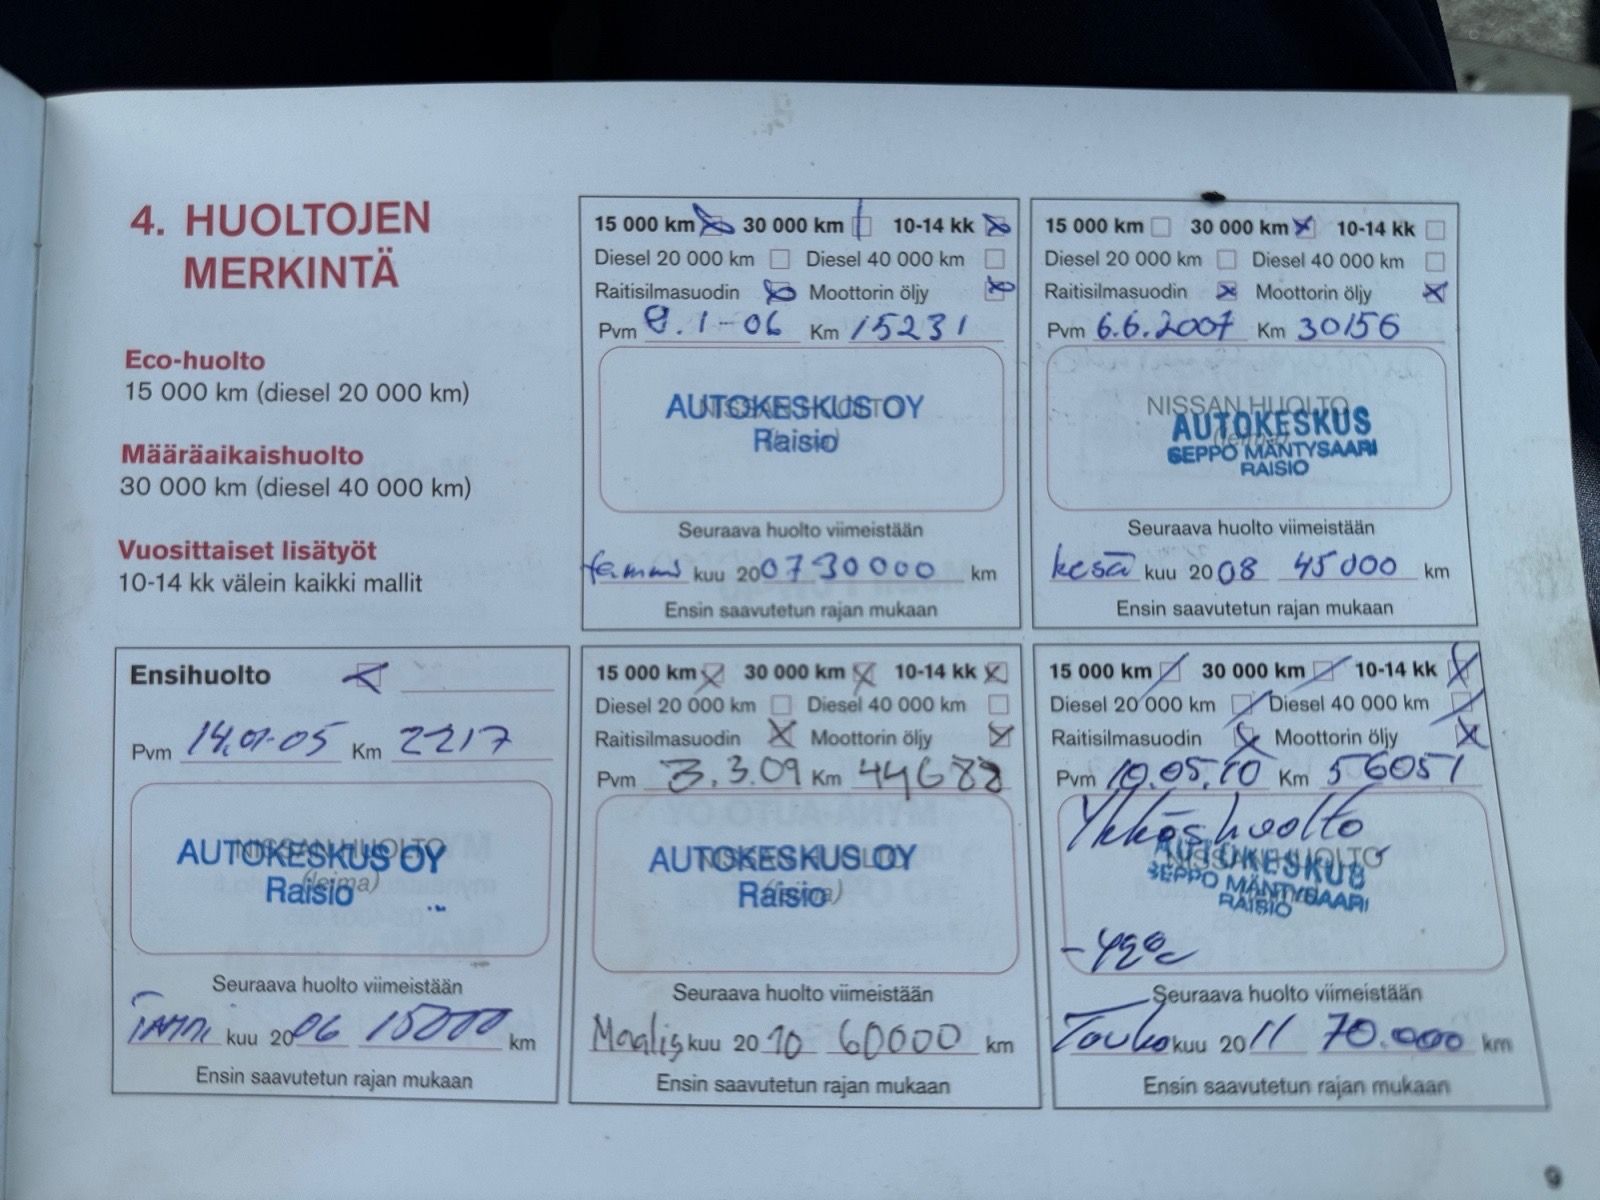 4. HUOLTOJEN
MERKINTÄ
Eco-huolto
15 000 km (diesel 20 000 km)
Määräaikaishuolto
30 000 km (diesel 40 000 km)
Vuosittaiset lisätyöt
10-14 kk välein kaikki mallit
15 000 km 30 000 km 10-14 kk
Diesel 20 000 km Diesel 40 000 km
Raitisilmasuodin Moottorin öljy
Pvm 9.1-06 Km 15231
AUTOKESKUS OY
Raisio
Seuraava huolto viimeistään
tammi kuu 2007 30000 km
Ensin saavutetun rajan mukaan
15 000 km 30 000 km 10-14 kk
Diesel 20 000 km Diesel 40 000 km
Raitisilmasuodin Moottorin öljy
Pvm 6.6.2007 Km 30156
NISSAN HUOLTO
AUTOKESKUS
SEPPO MÄNTYSAARI
RAISIO
Seuraava huolto viimeistään
kesä kuu 2008 45000 km
Ensin saavutetun rajan mukaan
Ensihuolto
Pvm 14.01-05 Km 2217
NISSAN HUOLTO
AUTOKESKUS OY
(leima)
Raisio
Seuraava huolto viimeistään
TAMMI kuu 2006 15000 km
Ensin saavutetun rajan mukaan
15 000 km 30 000 km 10-14 kk
Diesel 20 000 km Diesel 40 000 km
Raitisilmasuodin Moottorin öljy
Pvm 3.3.09 Km 44688
AUTOKESKUS OY
Raisio
Seuraava huolto viimeistään
Maalis kuu 2010 60000 km
Ensin saavutetun rajan mukaan
15 000 km 30 000 km 10-14 kk
Diesel 20 000 km Diesel 40 000 km
Raitisilmasuodin Moottorin öljy
Pvm 10.05.10 Km 56051
Ykköshuolto
NISSAN HUOLTO
AUTOKESKUS
SEPPO MÄNTYSAARI
RAISIO
-42°C
Seuraava huolto viimeistään
Touko kuu 2011 70.000 km
Ensin saavutetun rajan mukaan
9